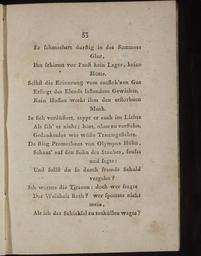 53
Er schmachtet durstig in des Sommers
Glut,
Ihn schirmt vor Frost kein Lager, keine
Hütte.
Selbst die Erinnerung vom entfloh'nen Gut
Erliegt des Elends lastendem Gewichte,
Kein Hoffen weckt ihm den erstorbnen
Muth.
In sich verdüstert, tappt er auch im Lichte
Als säh' er nicht; hört, ohne zu verstehn,
Gedankenlos wie wüste Traumgesichte.
Da stieg Prometheus von Olympus Höhn,
Schaut' auf den Sohn des Staubes, seufzt
und sagte:
Und sollst du so durch fremde Schuld
vergehn?
Ich warnte die Tyrannen: doch wer fragte
Der Weisheit Rath? wer spottete nicht
mein,
Als ich das Schicksal zu enthüllen wagte?